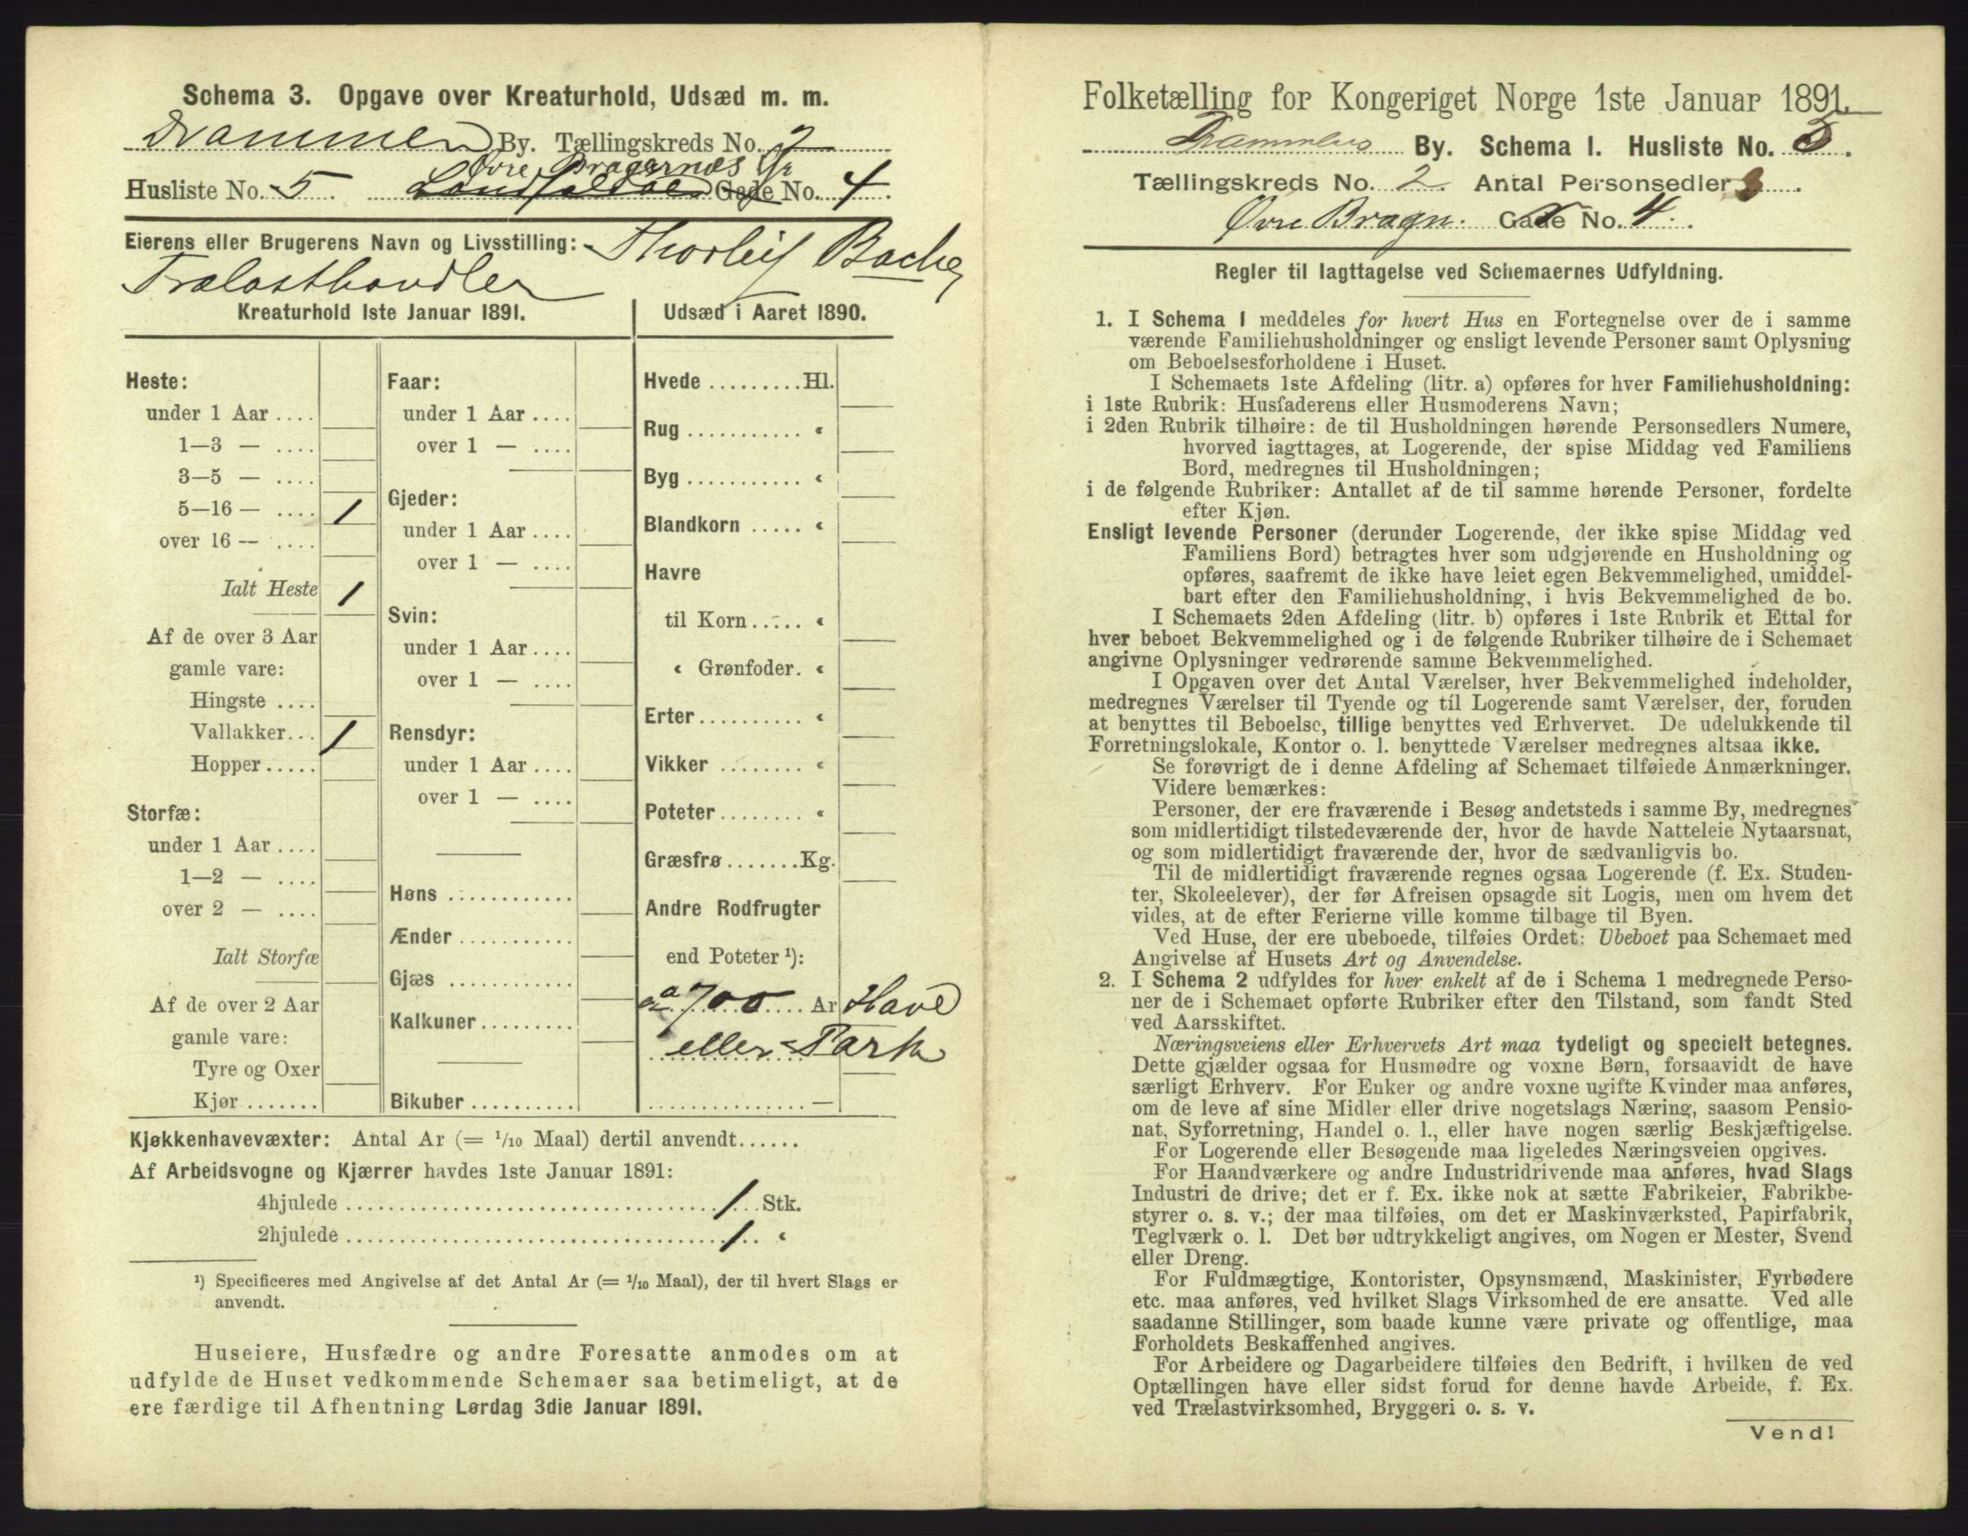 Schema 3. Opgave over Kreaturhold, Udsæd m. m.
Drammen By. Tællingskreds No. 2
Øvre Bragernæs gr
Husliste No. 5. Landfaldøe Gade No. 4.
Eierens eller Brugerens Navn og Livsstilling: Thorleif Bache,
Trælasthandler
Kreaturhold 1ste Januar 1891.
Heste:
under 1 Aar ....
1—3 — ....
3—5 — ....
5—16 — .... 1
over 16 — ....
Ialt Heste 1
Af de over 3 Aar
gamle vare:
Hingste ....
Vallakker... 1
Hopper.....
Storfæ:
under 1 Aar ....
1—2 — ....
over 2 — ....
Ialt Storfæ
Af de over 2 Aar
gamle vare:
Tyre og Oxer
Kjør.......
Faar:
under 1 Aar ....
over 1 — ....
Gjeder:
under 1 Aar ....
over 1 — ....
Svin:
under 1 Aar ....
over 1 — ....
Rensdyr:
under 1 Aar ....
over 1 — ....
Høns ............
Ænder...........
Gjæs ............
Kalkuner.........
Bikuber ..........
Udsæd i Aaret 1890.
Hvede .........Hl.
Rug ........... "
Byg ........... "
Blandkorn ..... "
Havre
til Korn ..... "
" Grønfoder. "
Erter.......... "
Vikker ........ "
Poteter........ "
Græsfrø.......Kg.
Andre Rodfrugter
end Poteter ¹):
ca 700 Ar Have
eller Park
.............. —
Kjøkkenhavevæxter: Antal Ar (= 1/10 Maal) dertil anvendt......
Af Arbeidsvogne og Kjærrer havdes 1ste Januar 1891:
4hjulede .................... 1 Stk.
2hjulede .................... 1 "
¹) Specificeres med Angivelse af det Antal Ar (= 1/10 Maal), der til hvert Slags er
anvendt.
Huseiere, Husfædre og andre Foresatte anmodes om at
udfylde de Huset vedkommende Schemaer saa betimeligt, at de
ere færdige til Afhentning Lørdag 3die Januar 1891.
Folketælling for Kongeriget Norge 1ste Januar 1891.
Drammens By. Schema I. Husliste No. 5.
Tællingskreds No. 2. Antal Personsedler 3.
Øvre Bragn. Gade No. 4.
Regler til Iagttagelse ved Schemaernes Udfyldning.
1. I Schema 1 meddeles for hvert Hus en Fortegnelse over de i samme
værende Familiehusholdninger og ensligt levende Personer samt Oplysning
om Beboelsesforholdene i Huset.
I Schemaets 1ste Afdeling (litr. a) opføres for hver Familiehusholdning:
i 1ste Rubrik: Husfaderens eller Husmoderens Navn;
i 2den Rubrik tilhøire: de til Husholdningen hørende Personsedlers Numere,
hvorved iagttages, at Logerende, der spise Middag ved Familiens
Bord, medregnes til Husholdningen;
i de følgende Rubriker: Antallet af de til samme hørende Personer, fordelte
efter Kjøn.
Ensligt levende Personer (derunder Logerende, der ikke spise Middag ved
Familiens Bord) betragtes hver som udgjørende en Husholdning og
opføres, saafremt de ikke have leiet egen Bekvemmelighed, umiddel-
bart efter den Familiehusholdning, i hvis Bekvemmelighed de bo.
I Schemaets 2den Afdeling (litr. b) opføres i 1ste Rubrik et Ettal for
hver beboet Bekvemmelighed og i de følgende Rubriker tilhøire de i Schemaet
angivne Oplysninger vedrørende samme Bekvemmelighed.
I Opgaven over det Antal Værelser, hver Bekvemmelighed indeholder,
medregnes Værelser til Tyende og til Logerende samt Værelser, der, foruden
at benyttes til Beboelse, tillige benyttes ved Erhvervet. De udelukkende til
Forretningslokale, Kontor o. l. benyttede Værelser medregnes altsaa ikke.
Se forøvrigt de i denne Afdeling af Schemaet tilføiede Anmærkninger.
Videre bemærkes:
Personer, der ere fraværende i Besøg andetsteds i samme By, medregnes
som midlertidigt tilstedeværende der, hvor de havde Natteleie Nytaarsnat,
og som midlertidigt fraværende der, hvor de sædvanligvis bo.
Til de midlertidigt fraværende regnes ogsaa Logerende (f. Ex. Studen-
ter, Skoleelever), der før Afreisen opsagde sit Logis, men om hvem det
vides, at de efter Ferierne ville komme tilbage til Byen.
Ved Huse, der ere ubeboede, tilføies Ordet: Ubeboet paa Schemaet med
Angivelse af Husets Art og Anvendelse.
2. I Schema 2 udfyldes for hver enkelt af de i Schema 1 medregnede Perso-
ner de i Schemaet opførte Rubriker efter den Tilstand, som fandt Sted
ved Aarsskiftet.
Næringsveiens eller Erhvervets Art maa tydeligt og specielt betegnes.
Dette gjælder ogsaa for Husmødre og voxne Børn, forsaavidt de have
særligt Erhverv. For Enker og andre voxne ugifte Kvinder maa anføres,
om de leve af sine Midler eller drive nogetslags Næring, saasom Pensio-
nat, Syforretning, Handel o. l., eller have nogen særlig Beskjæftigelse.
For Logerende eller Besøgende maa ligeledes Næringsveien opgives.
For Haandværkere og andre Industridrivende maa anføres, hvad Slags
Industri de drive; det er f. Ex. ikke nok at sætte Fabrikeier, Fabrikbe-
styrer o. s. v.; der maa tilføies, om det er Maskinværksted, Papirfabrik,
Teglværk o. l. Det bør udtrykkeligt angives, om Nogen er Mester, Svend
eller Dreng.
For Fuldmægtige, Kontorister, Opsynsmænd, Maskinister, Fyrbødere
etc. maa anføres, ved hvilket Slags Virksomhed de ere ansatte. Ved alle
saadanne Stillinger, som baade kunne være private og offentlige, maa
Forholdets Beskaffenhed angives.
For Arbeidere og Dagarbeidere tilføies den Bedrift, i hvilken de ved
Optællingen have eller sidst forud for denne havde Arbeide, f. Ex.
ved Trælastvirksomhed, Bryggeri o. s. v.
Vend!